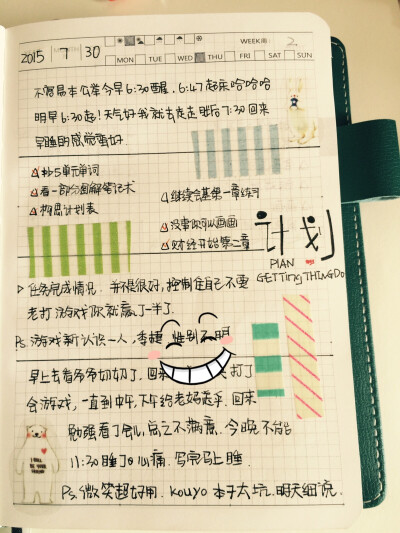 2015 7 30 WEEK周: 2
MON TUE WED THU FRI SAT SUN
不容易本公举今早6:30醒,6:47起来哈哈哈
明早6:30起!天气好我就去走走路后7:30回来
早睡的感觉蛮好.
抄5单元单词
看一部分图解笔记术
构思计划表
继续会基第一章练习
没事你可以画画
财经开始第二章
计划
PlAN
GETTing THINGDo
▷ 任务完成情况:并不很好,控制住自己不要
老打游戏你就赢了一半了.
Ps.游戏新认识一人,李捷,性别不明
早上去看爷爷奶奶了.回来 打了
会游戏,一直到中午,下午给老妈 回来
勉强看了会儿,总之不满意.今晚不能
11:30睡了,心痛.写完马上睡.
Ps.微笑超好用.kouyo 本子太坑.明天细说.